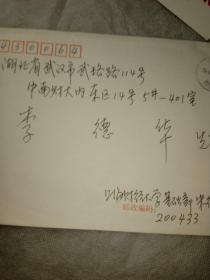 430064
湖北省武汉市武珞路114号
中南财大内东区14号5年-401室
李 德 华
上海财经大学基础部
邮政编码
200433